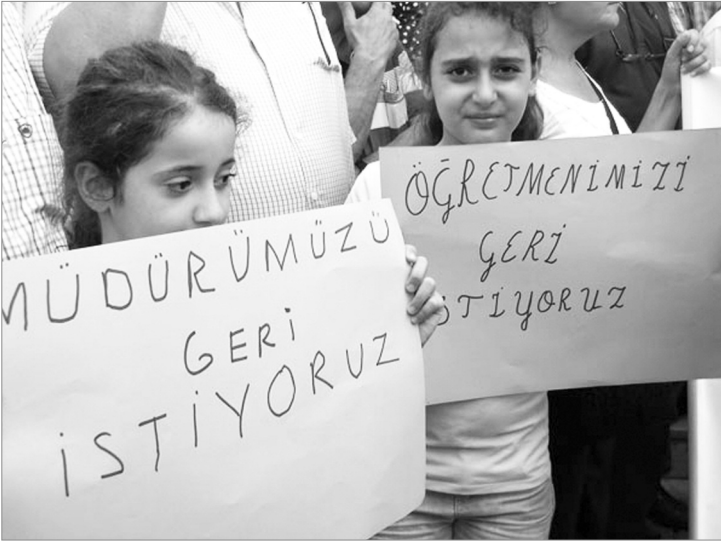 MÜDÜRÜMÜZÜ
GERİ
İSTİYORUZ
ÖĞRETMENİMİZİ
GERİ
İSTİYORUZ